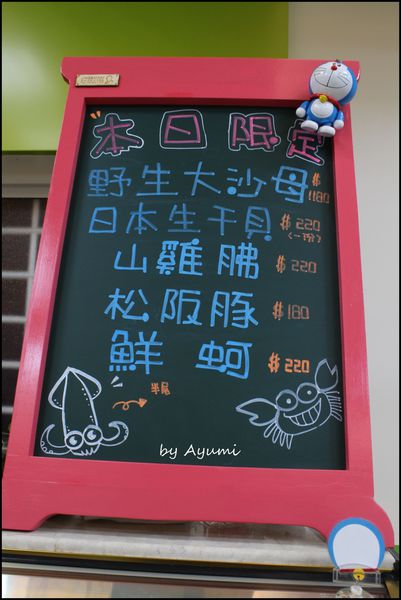 本日限定
野生大沙母 $1180
日本生干貝 $220
(一份)
山雞腿 $220
松阪豚 $180
鮮蚵 $220
半尾
by Ayumi